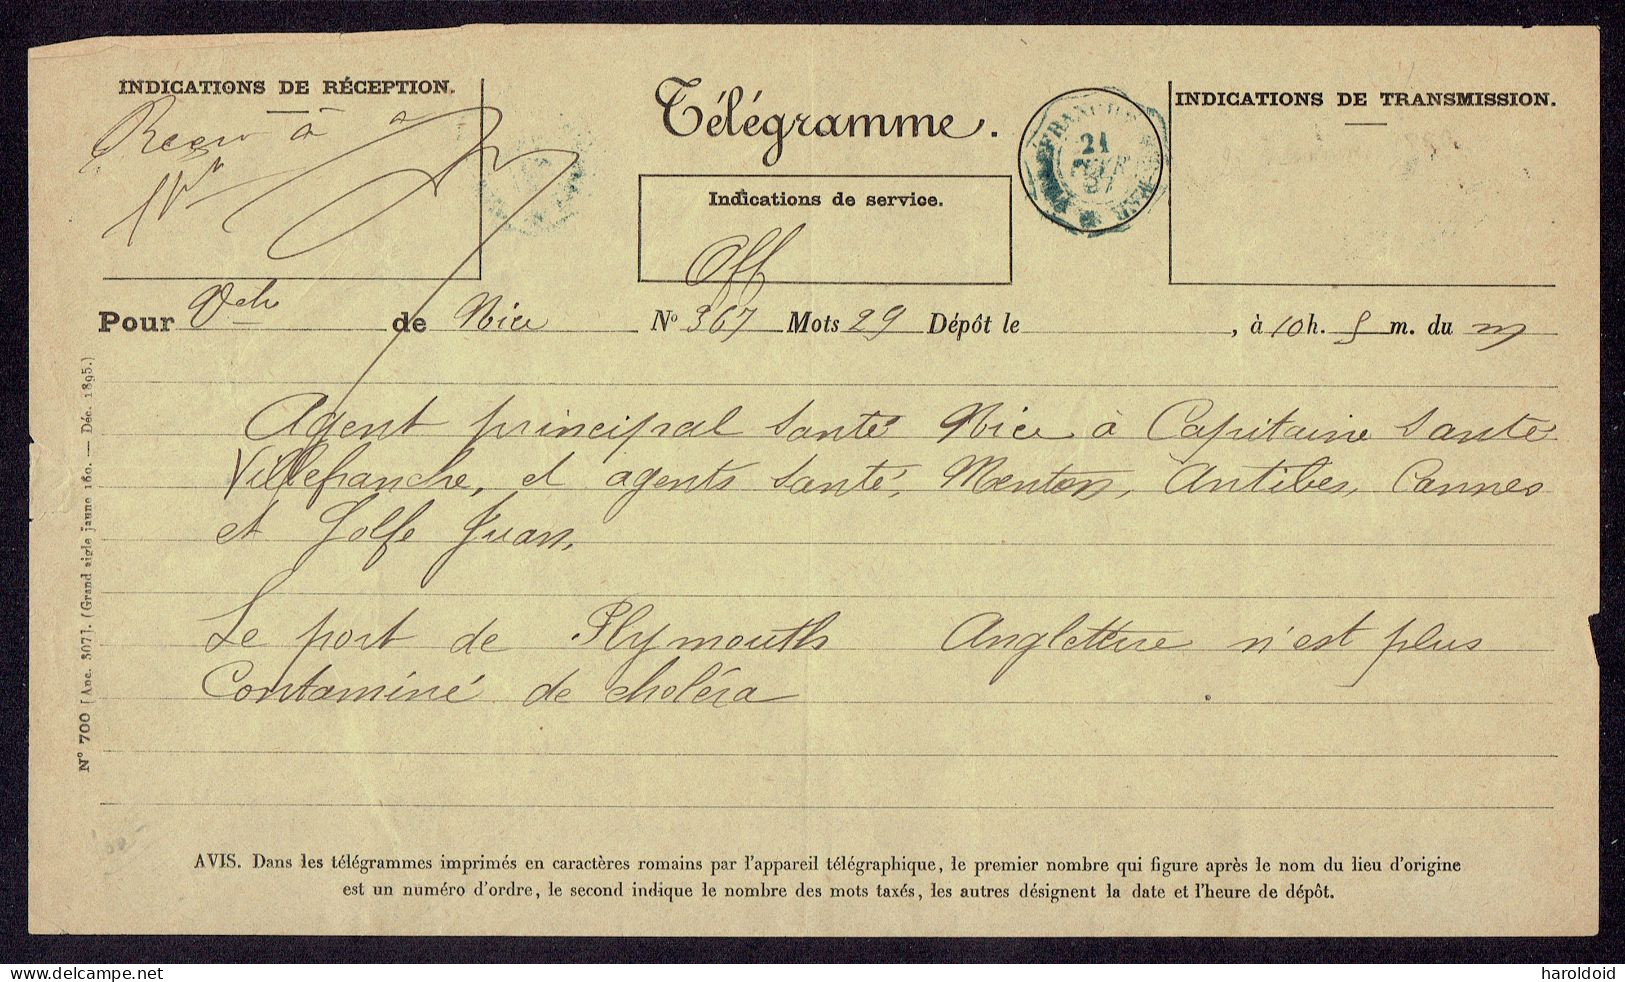 INDICATIONS DE RÉCEPTION.
Télégramme.
INDICATIONS DE TRANSMISSION.
Recu à
21
Indications de service.
Off
Pour de Nice N° 367 Mots 29 Dépôt le , à 10 h. 5 m. du m
Agent principal Santé Nice à Capitaine Santé
Villefranche, et agents Santé, Menton, Antibes, Cannes
et Golfe Juan.
Le port de Plymouth Angleterre n'est plus
Contaminé de choléra.
N° 700 [Anc. 307]. (Grand aigle jaune 160. — Déc. 1895.)
AVIS. Dans les télégrammes imprimés en caractères romains par l'appareil télégraphique, le premier nombre qui figure après le nom du lieu d'origine
est un numéro d'ordre, le second indique le nombre des mots taxés, les autres désignent la date et l'heure de dépôt.
www.delcampe.net
haroldoid